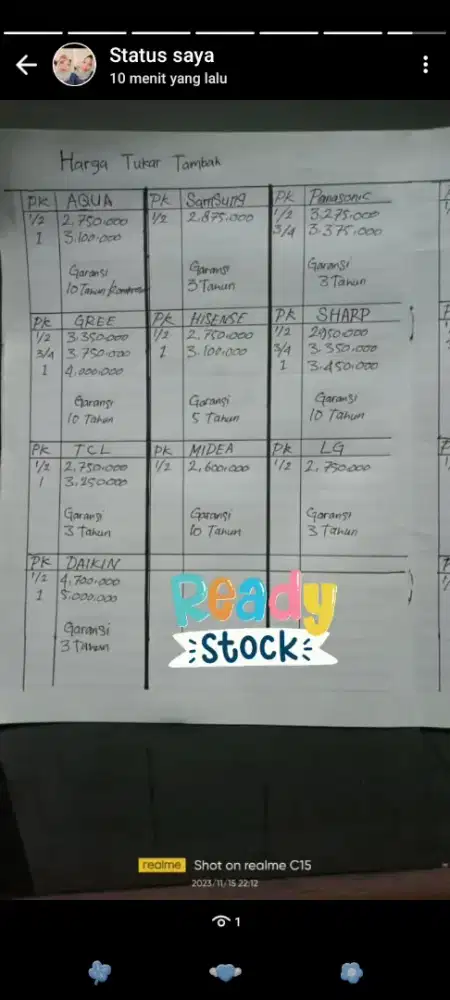 Status saya
10 menit yang lalu
Harga Tukar Tambah
PK AQUA PK SamSung PK Panasonic
1/2 2.750.000 1/2 2.875.000 1/2 3.275.000
1 3.100.000 3/4 3.375.000
Garansi Garansi Garansi
10 Tahun 3 Tahun 3 Tahun
PK GREE PK HiSENSE PK SHARP
1/2 3.350.000 1/2 2.750.000 1/2 2.950.000
3/4 3.750.000 1 3.100.000 3/4 3.350.000
1 4.000.000 1 3.450.000
Garansi Garansi Garansi
10 Tahun 5 Tahun 10 Tahun
PK TCL PK MIDEA PK LG
1/2 2.750.000 1/2 2.600.000 1/2 2.750.000
1 3.250.000
Garansi Garansi Garansi
3 Tahun 10 Tahun 3 Tahun
PK DAIKIN
1/2 4.700.000
1 5.000.000
Garansi
3 Tahun
Ready
stock
realme Shot on realme C15
2023/11/15 22:12
1